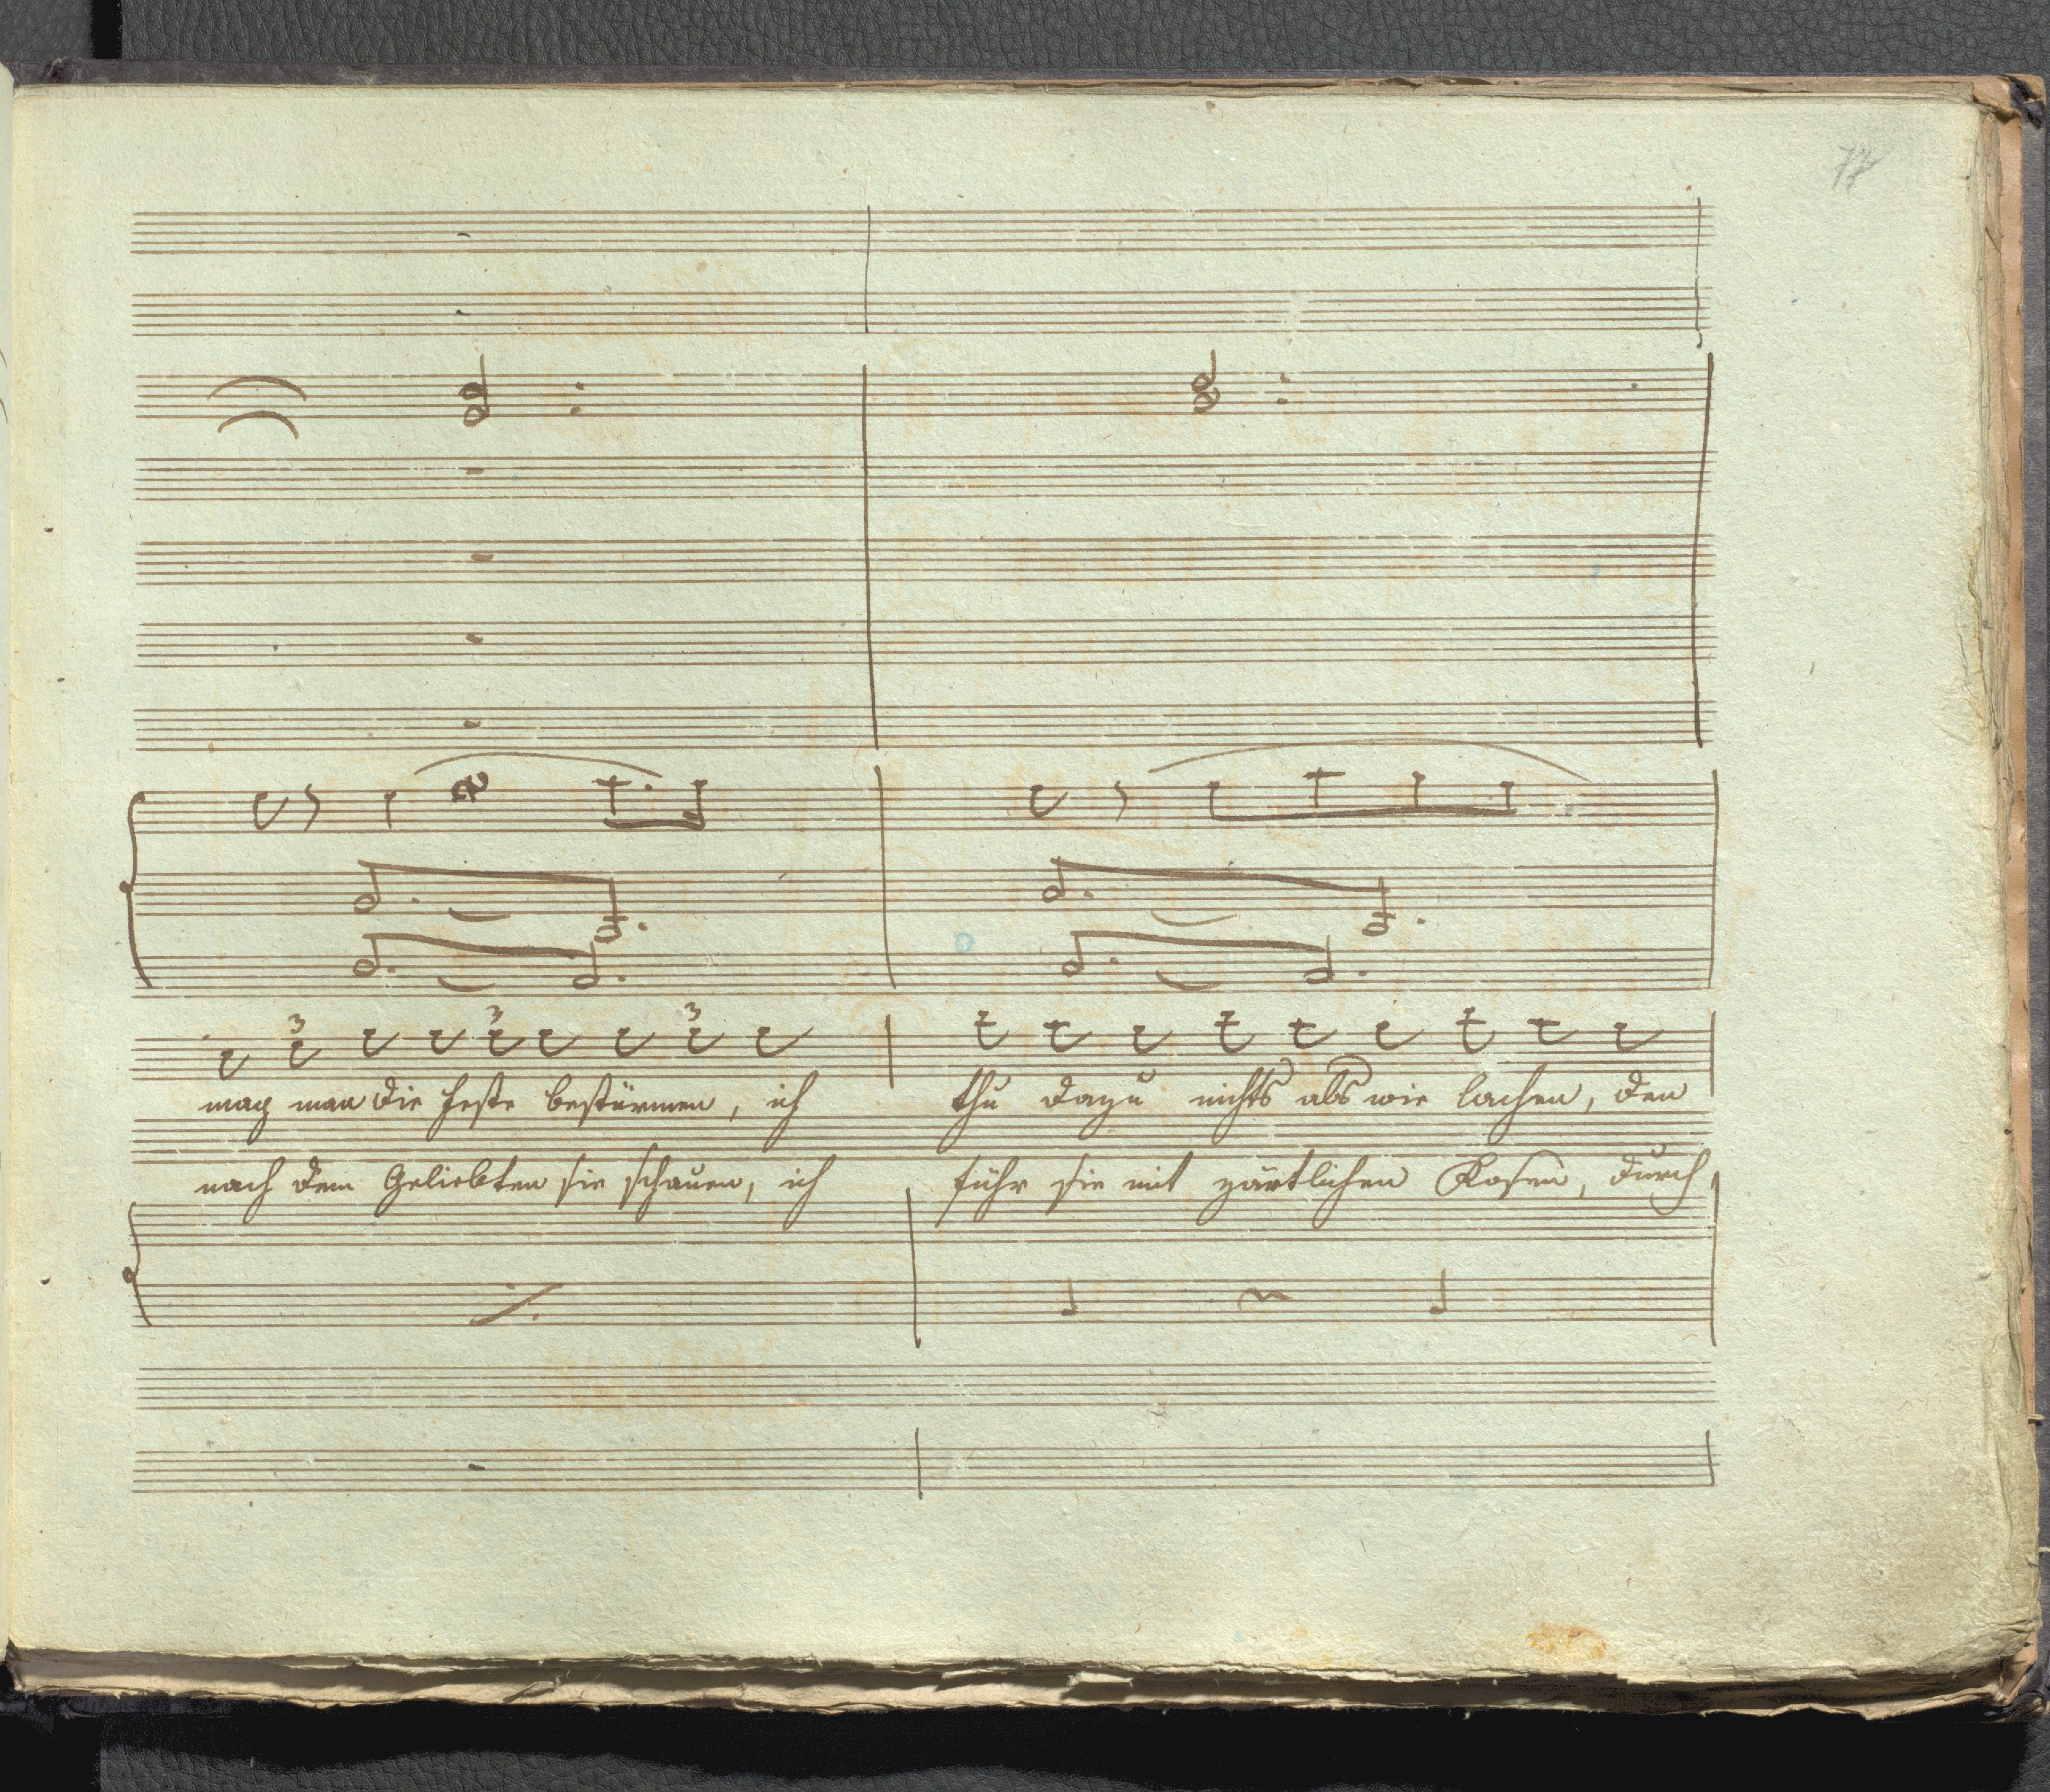 77
3 3 3
mag man die Feste bestürmen, ich thu dazu nichts als wie lachen, den
nach dem Geliebten sie schauen, ich führ sie mit zärtlichen Kosen, durch